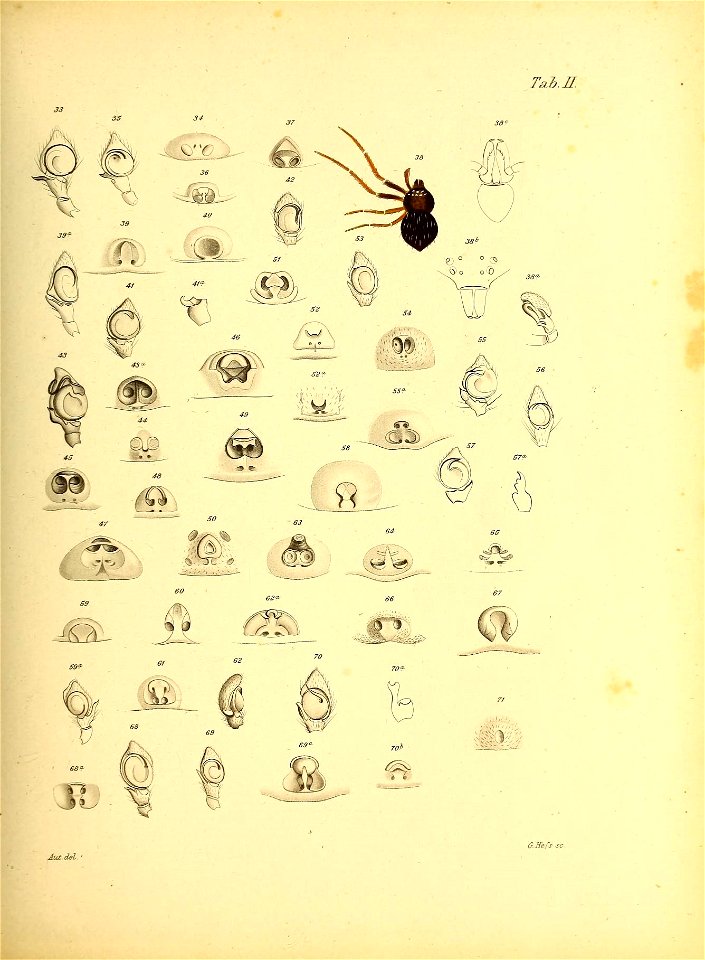 Tab. II.
33 35 34 37 38 38c
36 42
39a 39 40 51 53 38b
41 41a 52 54 38a
43 43a 46 52a 55 56
44 49 55a
45 48 58 57 57a
47 50 63 64 65
59 60 62a 66 67
59a 61 62 70 70a 71
68 69 69a 70b
68a
Aut. del.
G. Hefs sc.